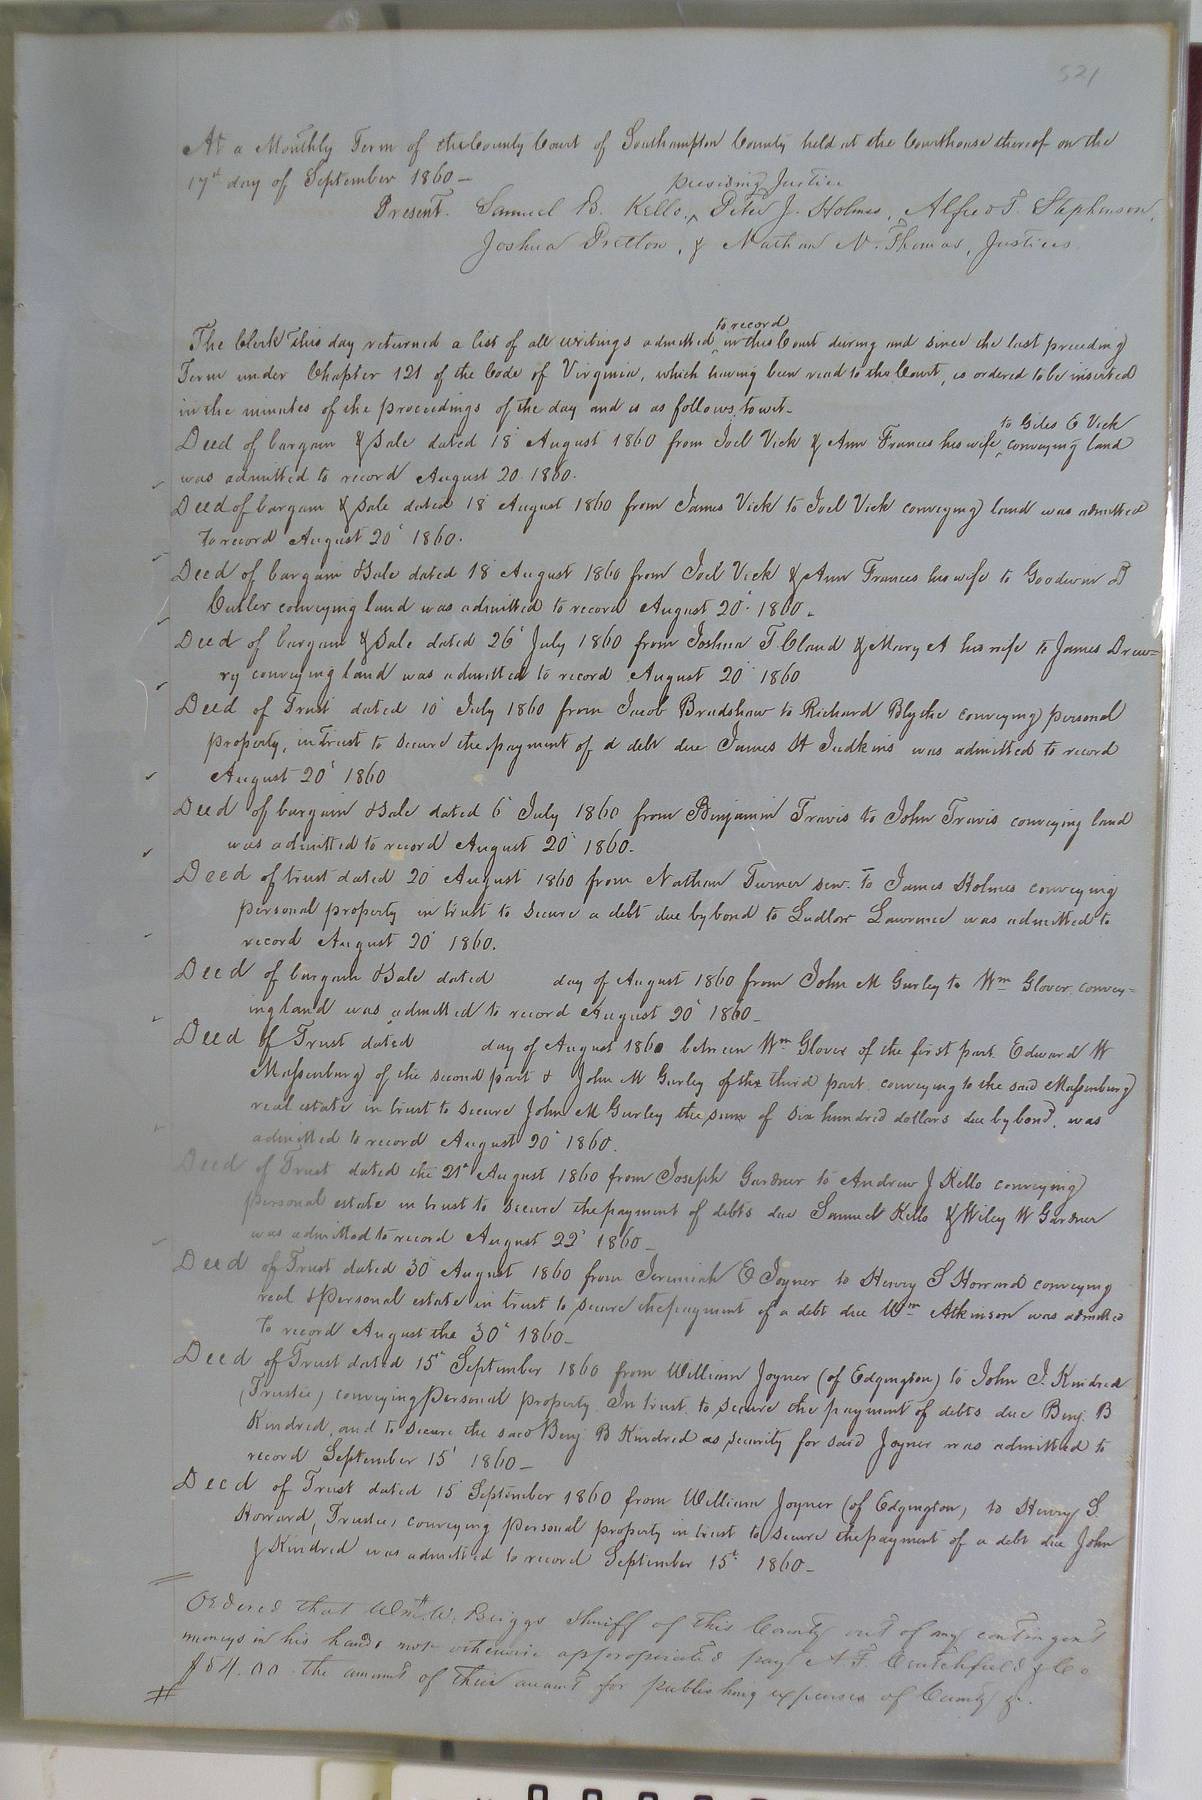 521
At a Monthly Term of the County Court of Southampton County held at the Courthouse thereof on the
17th day of September 1860 –
presiding Justice
Present. Samuel B. Kello, ‸ Peter J. Holmes, Alfred T. Stephenson,
Joshua Pretlow, & Nathan N. Thomas, Justices
to record
The Clerk this day returned a list of all writings admitted ‸ in this Court during and since the last preceding
Term under Chapter 121 of the Code of Virginia, which having been read to the Court, is ordered to be inserted
in the minutes of the proceedings of the day and is as follows, to wit –
to Giles E Vick
Deed of bargain & Sale dated 18 August 1860 from Joel Vick & Ann Frances his wife ‸ conveying land
was admitted to record August 20 1860.
Deed of bargain & Sale dated 18 August 1860 from James Vick to Joel Vick conveying land was admitted
to record August 20 1860.
Deed of bargain & Sale dated 18 August 1860 from Joel Vick & Ann Frances his wife to Goodwin D
Cutler conveying land was admitted to record August 20. 1860 –
Deed of bargain & Sale dated 26 July 1860 from Joshua T Claud & Mary A his wife to James Drew=
ry conveying land was admitted to record August 20 1860
Deed of Trust dated 10 July 1860 from Jacob Bradshaw to Richard Blythe conveying personal
property, in trust to secure the payment of a debt due James H Judkins was admitted to record
August 20 1860
Deed of bargain & Sale dated 6 July 1860 from Benjamin Travis to John Travis conveying land
was admitted to record August 20 1860 –
Deed of trust dated 20 August 1860 from Nathan Turner sen. to James Holmes conveying
personal property in trust to secure a debt due by bond to Ludlow Lawrence was admitted to
record August 20 1860.
Deed of bargain & Sale dated day of August 1860 from John M Gurley to Wm Glover convey=
ing land was admitted to record August 20 1860 –
Deed of Trust dated day of August 1860 between Wm Glover of the first part Edward W
Massenburg of the second part & John M Gurley of the third part conveying to the said Massenburg
real estate in trust to secure John M Gurley the sum of six hundred dollars due by bond, was
admitted to record August 20 1860.
Deed of Trust dated the 21st August 1860 from Joseph Gardner to Andrew J Kello conveying
personal estate in trust to secure the payment of debts due Samuel Kello & Wiley W Gardner
was admitted to record August 22 1860 –
Deed of Trust dated 30 August 1860 from Jeremiah E Joyner to Henry S Howard conveying
real & personal estate in trust to secure the payment of a debt due Wm Atkinson was admitted
to record August the 30 1860 –
Deed of Trust dated 15 September 1860 from William Joyner (of Edgington) to John J. Kindred
(Trustee) conveying personal property In trust to secure the payment of debts due Benj. B
Kindred, and to secure the said Benj B Kindred as security for said Joyner was admitted to
record September 15 1860 –
Deed of Trust dated 15 September 1860 from William Joyner (of Edgington) to Henry S.
Howard, Trustee, conveying personal property in trust to secure the payment of a debt due John
J Kindred was admitted to record September 15th 1860 –
Ordered that Wm. W. Briggs Sheriff of this County out of any contingent
moneys in his hands not otherwise appropriated pay A F Crutchfield & Co
$54.00 the amount of their account for publishing expenses of County &c.